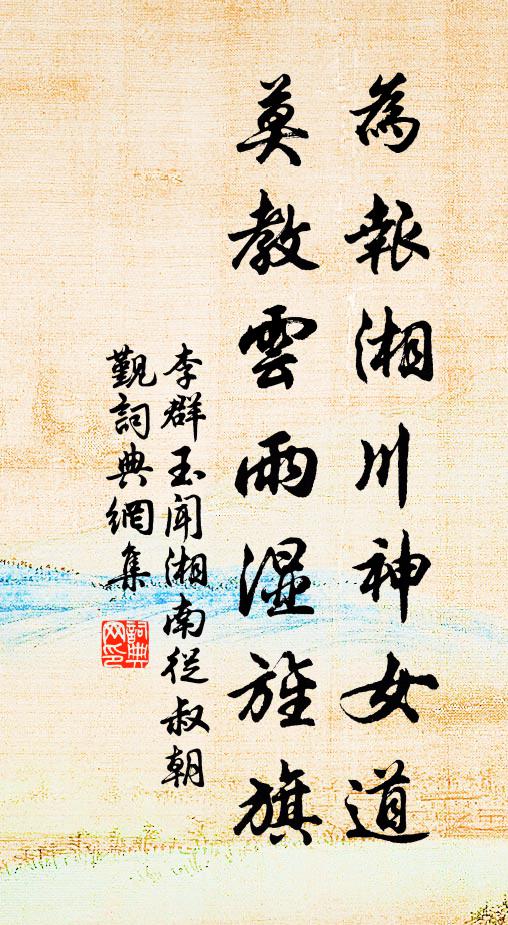 為報湘川神女道
莫教雲雨湿旌旗
李群玉闻湘南從叔朝
觐詞典網集
詞典
网印